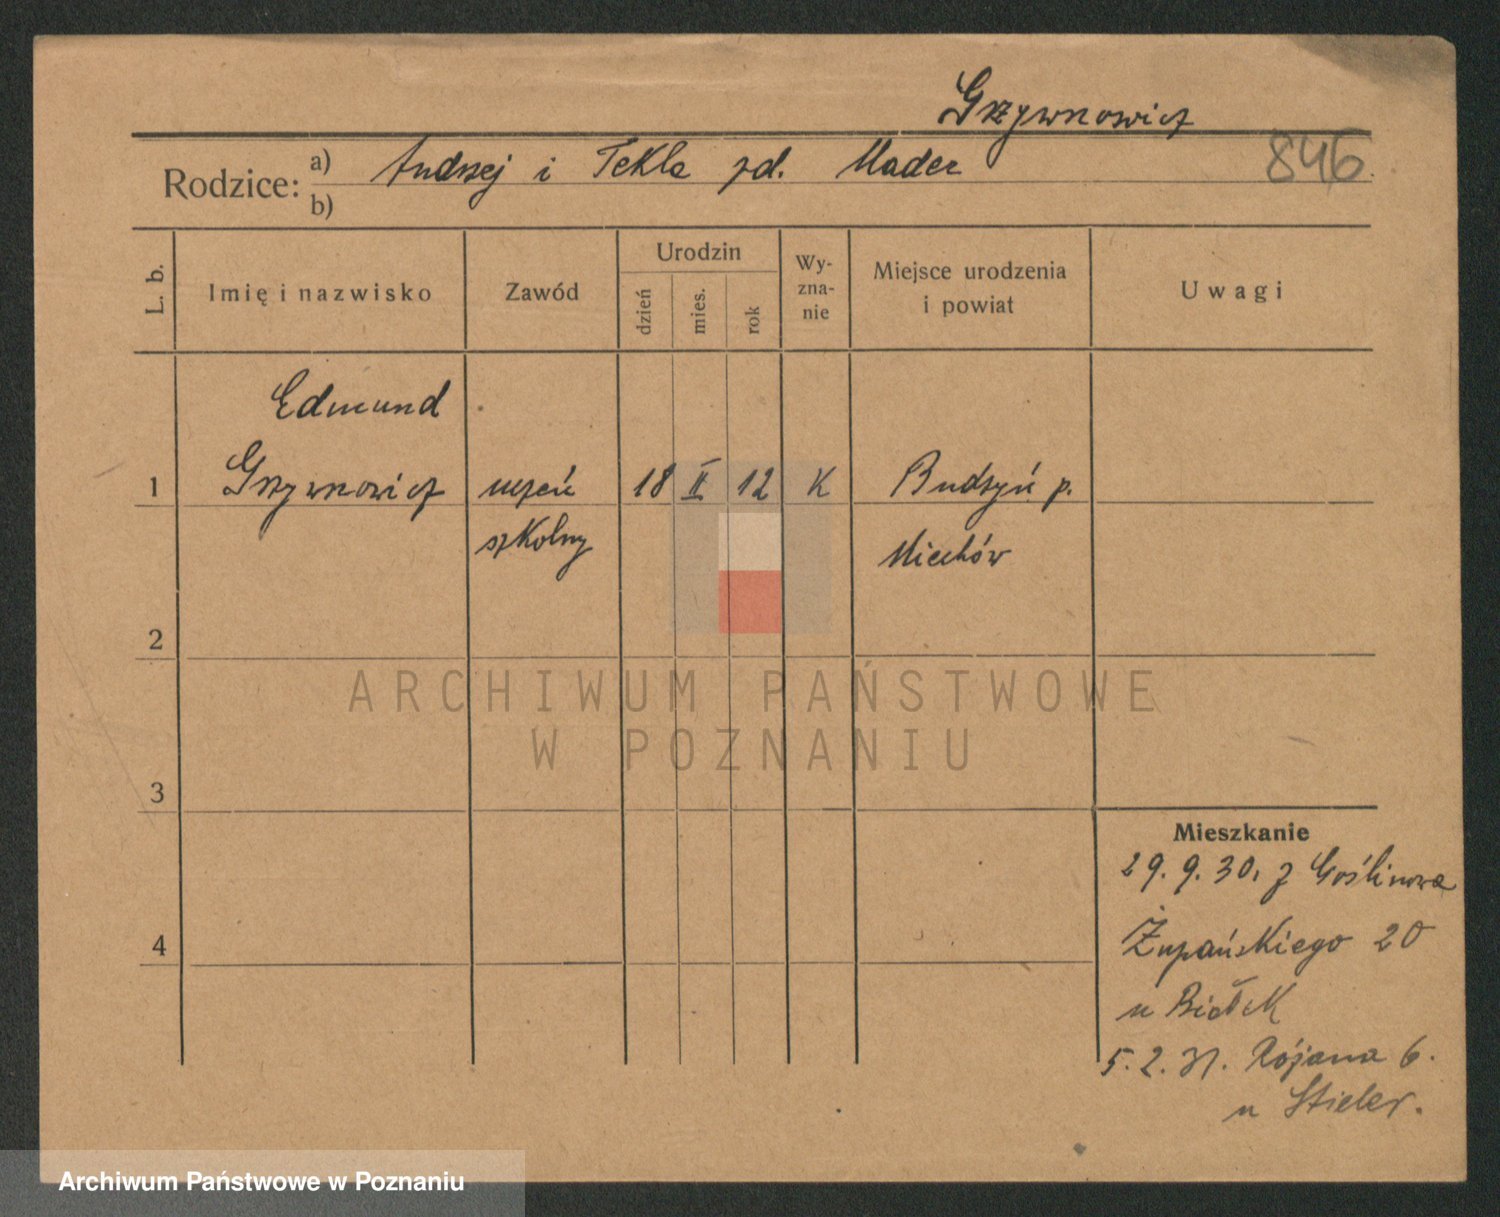 Grzywnowicz
Rodzice: a) Andrzej i Tekla zd. Mader 846
b)
L. b. Imię i nazwisko Zawód Urodzin dzień mies. rok Wyznanie Miejsce urodzenia i powiat Uwagi
Edmund
1 Grzywnowicz uczeń 18 II 12 K Budzyń p.
szkolny Miechów
2
ARCHIWUM PAŃSTWOWE
W POZNANIU
3
Mieszkanie
29. 9. 30. z Goślinowa
4 Żupańskiego 20
u Białek
5. 2. 31. 6.
u Stieler.
Archiwum Państwowe w Poznaniu